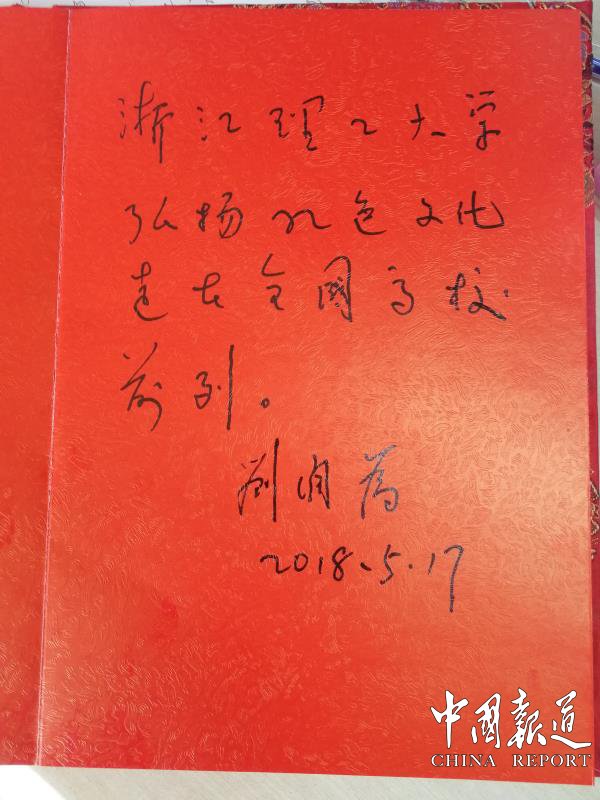 浙江理工大学
弘扬红色文化
走在全国高校
前列。
刘润为
2018.5.17
中国報道
CHINA REPORT